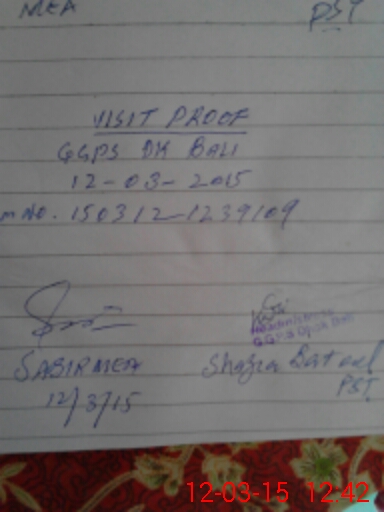 MEA PST
VISIT PROOF
GGPS DK BALI
12-03-2015
m No. 150312-1239109
Headmistress
G.G.P.S
SABIR MEA
Shazia
PST
12/3/15
12-03-15 12:42